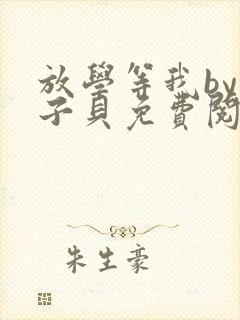 放學等我by
子貝免費閱
朱生豪